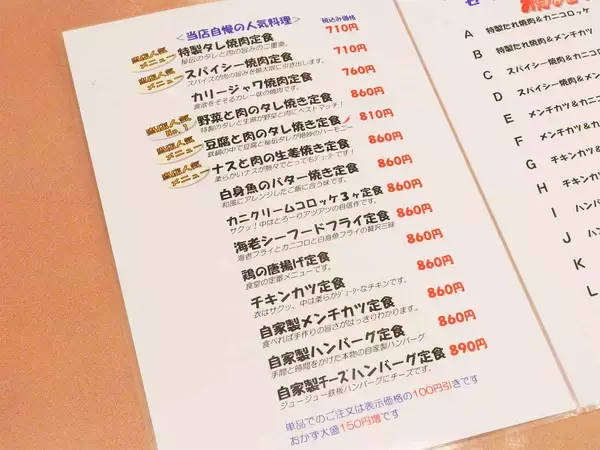 <当店自慢の人気料理> 税込み価格
当店人気
メニュー
特製タレ焼肉定食 710円
秘伝のタレと肉の旨みのご馳走。
当店人気
メニュー
スパイシー焼肉定食 710円
スパイスが肉の旨みを最大限に引き出します。
カリージャワ焼肉定食 760円
食欲をそそるカレー味の焼肉です。
当店人気
No.1
野菜と肉のタレ焼き定食 860円
特製のタレと生姜が野菜と肉にベストマッチ!
当店人気
メニュー
豆腐と肉のタレ焼き定食 810円
鉄鍋の中で豆腐と秘伝タレが絶妙のハーモニー
当店人気
メニュー
ナスと肉の生姜焼き定食 860円
柔らかいナスが熱々でとってもジューシーです!
白身魚のバター焼き定食 860円
和風にアレンジしたご飯に合う味です。
カニクリームコロッケ3ヶ定食 860円
サクッ!中はとろーりアツアツの自信作です。
海老シーフードフライ定食 860円
海老フライとカニコロと白身魚フライの贅沢三昧
鶏の唐揚げ定食 860円
食堂の定番メニューです。
チキンカツ定食 860円
衣はサクッ、中は柔らかジューシーなチキンです。
自家製メンチカツ定食 860円
食べれば手作りの旨さがはっきりわかります。
自家製ハンバーグ定食 860円
手間と時間をかけた本物の自家製ハンバーグ
自家製チーズハンバーグ定食 890円
ジュージュー鉄板ハンバーグにチーズです。
単品でのご注文は表示価格の100円引きです
おかず大盛150円増です
A 特製たれ焼肉&カニコロッケ
B 特製たれ焼肉&メンチカツ
C スパイシー焼肉&カニコロ
D スパイシー焼肉&メン
E メンチカツ&カニコ
F メンチカツ&
G チキンカツ&
H チキンカツ
I ハンバー
J ハンバ
K
L